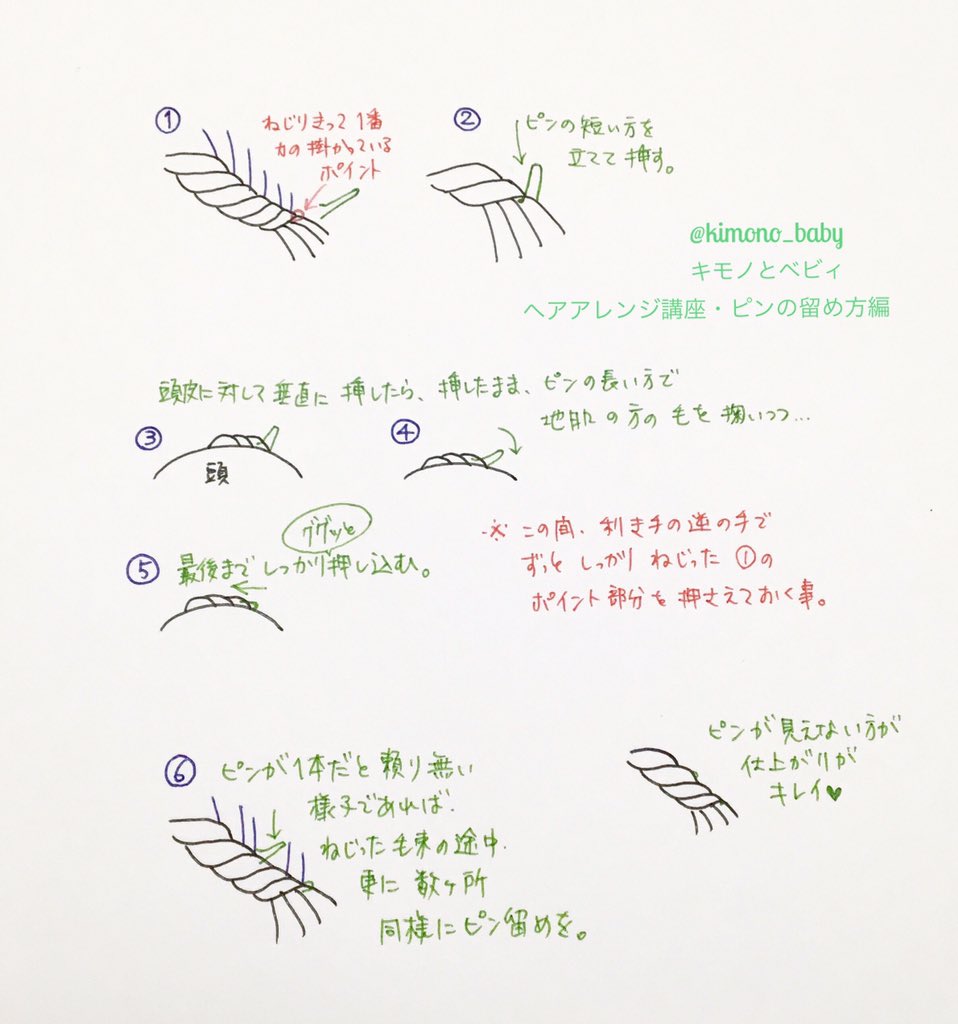 ①
ねじりきって1番
力の掛かっている
ポイント
②
ピンの短い方を
立てて挿す。
@kimono_baby
キモノとベビィ
ヘアアレンジ講座・ピンの留め方編
頭皮に対して垂直に挿したら、挿したまま、ピンの長い方で
地肌の方の毛を掬いつつ…
③
頭
④
ググッと
⑤ 最後までしっかり押し込む。
※この間、利き手の逆の手で
ずっとしっかりねじった①の
ポイント部分を押さえておく事。
⑥ ピンが1本だと頼り無い
様子であれば、
ねじった毛束の途中、
更に数ヶ所
同様にピン留めを。
ピンが見えない方が
仕上がりが
キレイ♥